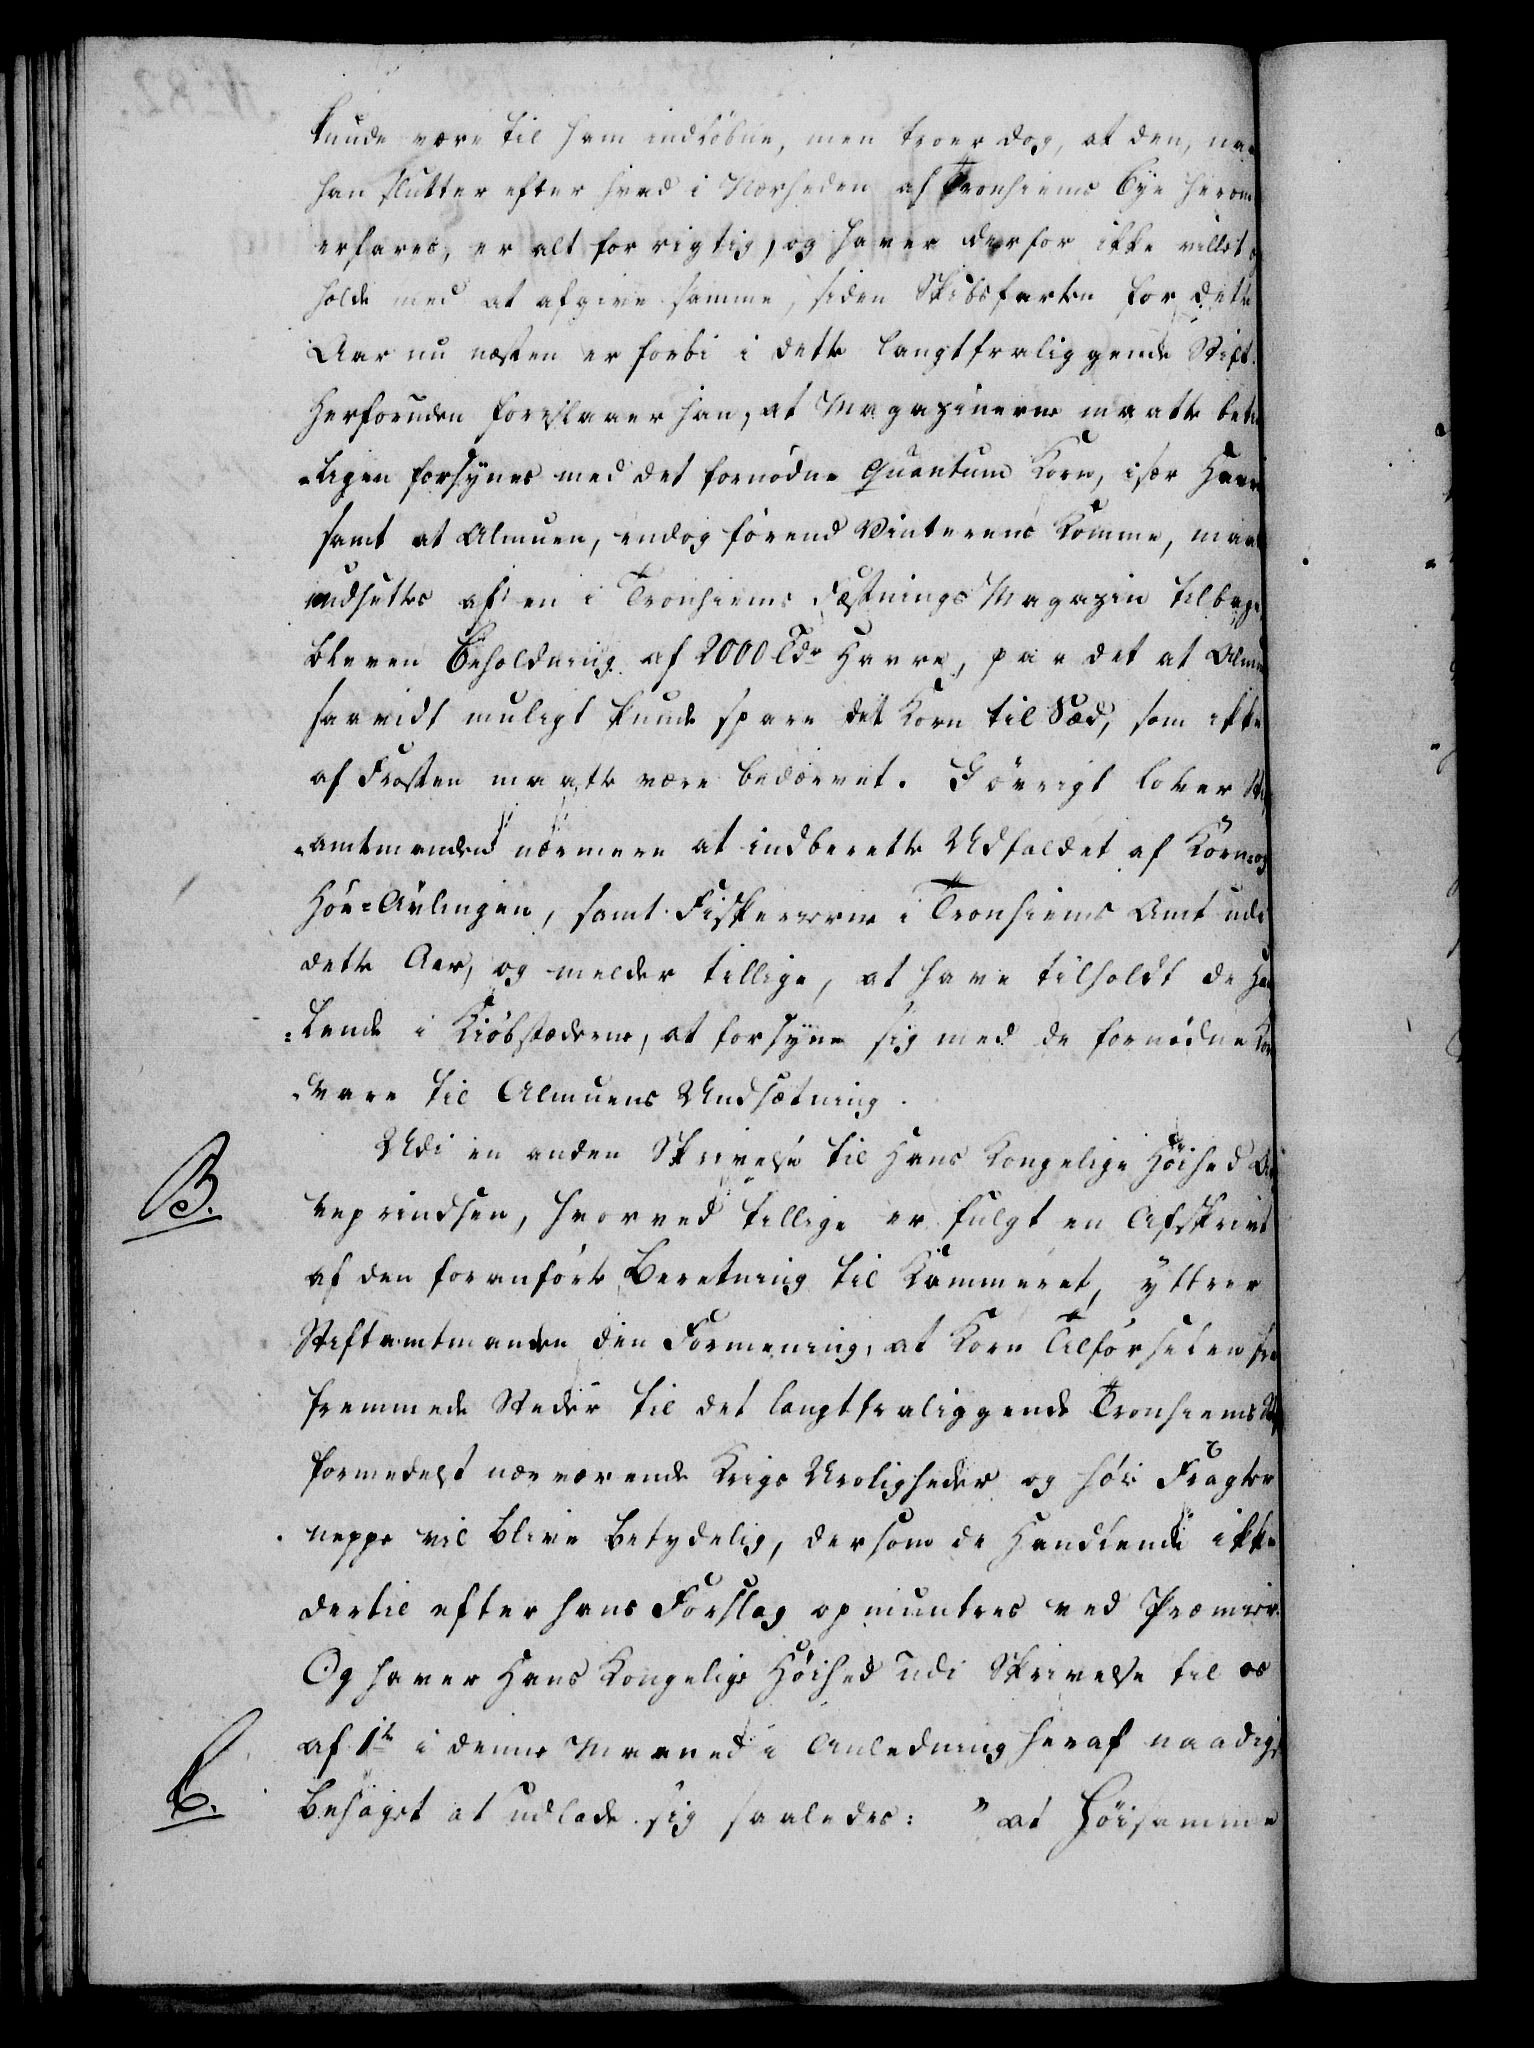 kunde være til ham indløbne, men troer dog, at den, naar
han slutter efter hvad i Nærheden af Tronhiems Bye herom
erfares, er alt for rigtig, og haver derfor ikke villet op
holde med at afgive samme, siden Skibsfarten for dette
Aar nu næsten er forbi i dette langtfraliggende Stift.
Herforuden foreslaaer han, at Magazinerne maatte bete
=ligen forsynes med det fornødne Quantum Korn, især Havre
samt at Almuen, endog førend Vinterens Komme, maatte
undsættes af en i Tronhiems Fæstnings Magazin tilbage
bleven Beholdning af 2000 Tdr Havre, paa det at Almuen
saavidt muligt kunde spare det Korn til Sæd, som ikke
af Frosten maatte være bedærvet. I øvrigt lover Stift
=amtmanden nærmere at indberette Udfaldet af Korn= og
Høe=Avlingen, samt Fiskerierne i Tronhiems Amt udi
dette Aar, og melder tillige, at have tilholdt de Hand
=lende i Kiøbstæderne, at forsyne sig med de fornødne Korn
=vare til Almuens Undsætning.
Udi en anden Skrivelse til Hans Kongelige Høihed Ar
B.
veprindsen, hvorved tillige er fulgt en Afskrivt
af den foranførte Beretning til Kammeret, yttrer
Stiftamtmanden den Formening, at Korn Tilførselen fra
fremmede Steder til det langtfraliggende Tronhiems Stift
formedelst nærværende Krigs Uroligheder og høie Fragter
neppe vil blive betydelig, dersom de Handlende ikke
dertil efter hans Forslag opmuntres ved Præmier.
Og haver Hans Kongelige Høihed udi Skrivelse til os
af 1te i denne Maaned i Anledning heraf naadigst
C.
behaget at udlade sig saaledes: "at Høisamme